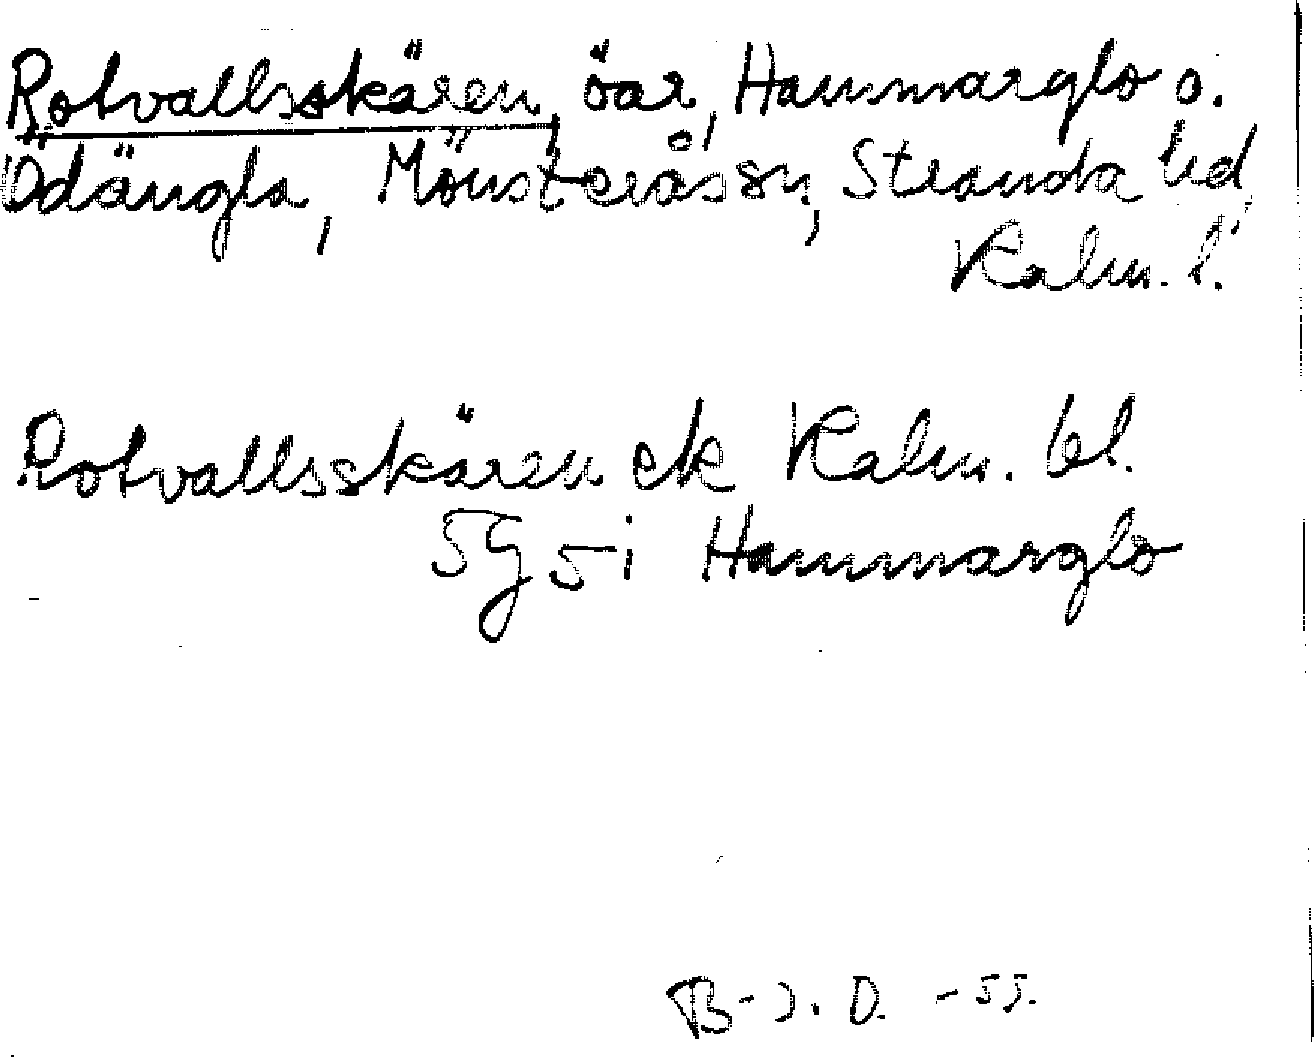 Rotvallsskären, öar, Hammarglo o.
Ödängla, Mönsterås sn, Stranda hd,
Kalm. l.
Rotvallsskären ek Kalm. bl.
5G 5i Hammarglo
B-J. D. -55.